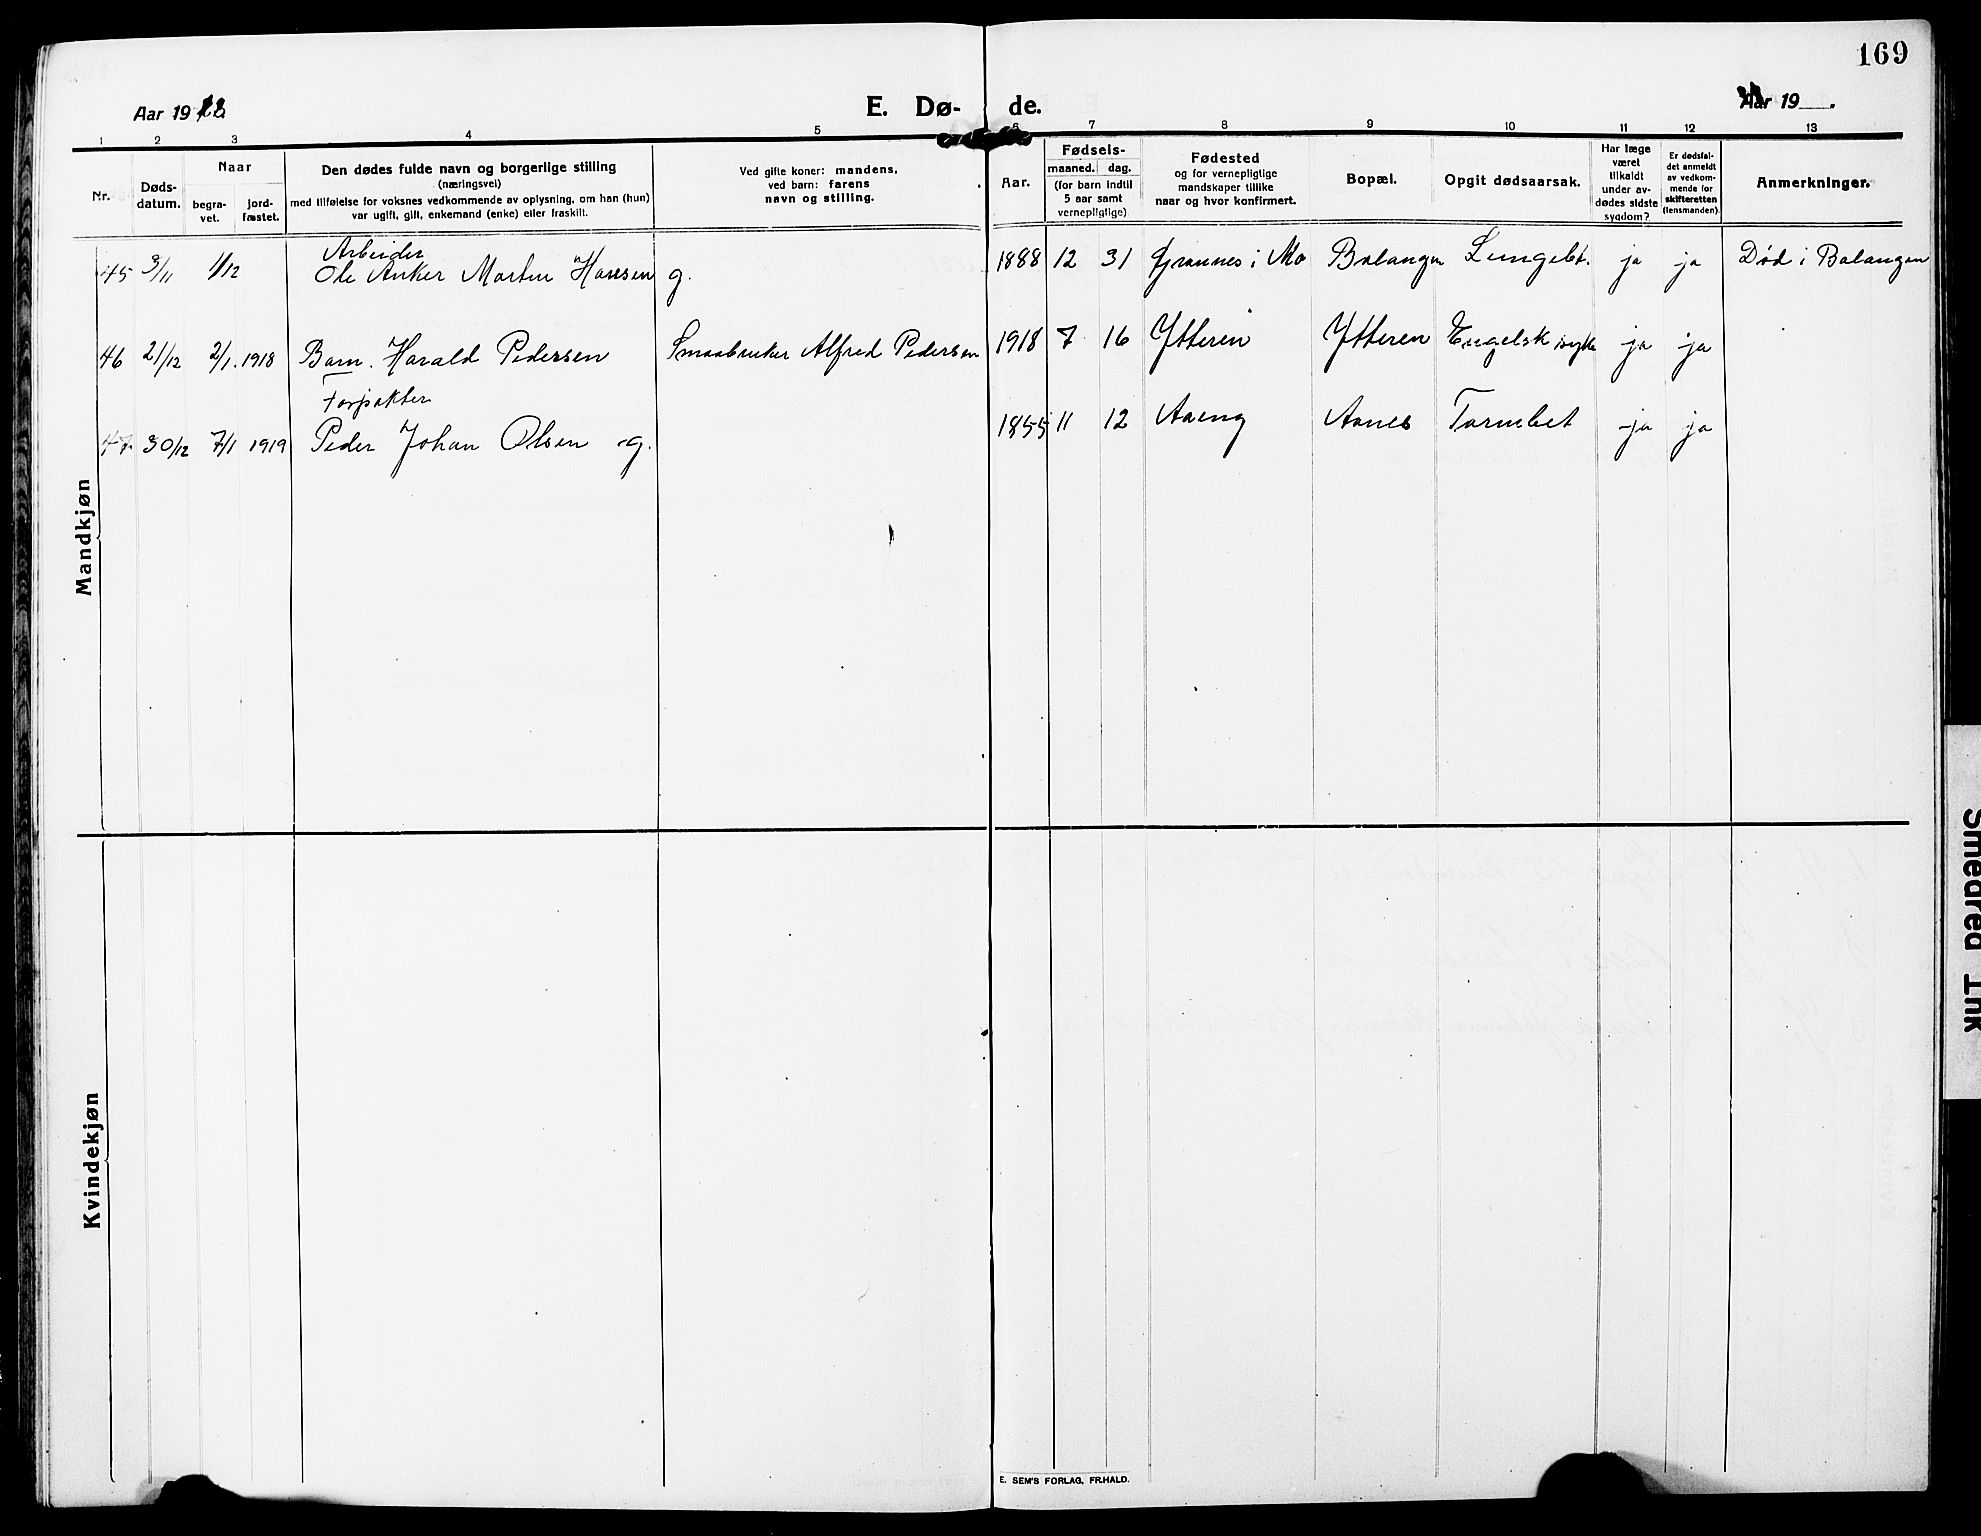 169
Aar 19
E. Dø- de.
Aar 19 .
1 2 3 4 5 6 7 8 9 10 11 12 13
Nr.
Døds-
datum.
Naar
begra-
vet.
jord-
fæstet.
Den dødes fulde navn og borgerlige stilling
(næringsvei)
med tilføielse for voksnes vedkommende av oplysning, om han (hun)
var ugift, gift, enkemand (enke) eller fraskilt.
Ved gifte koner: mandens,
ved barn: farens
navn og stilling.
Aar.
Fødsels-
maaned. dag.
(for barn indtil
5 aar samt
vernepligtige)
Fødested
og for vernepligtige
mandskaper tillike
naar og hvor konfirmert.
Bopæl.
Opgit dødsaarsak.
Har læge
været
tilkaldt
under av-
dødes sidste
sygdom?
Er dødsfal-
det anmeldt
av vedkom-
mende for
skifteretten
(lensmanden)
Anmerkninger.
Mandkjøn
Arbeider
45 3/11 1/12 Ole Anker Martin Hansen g. 1888 12 31 Grannes i Mo Balangen Lungebt. ja ja Død i Balangen
46 21/12 2/1. 1918 Barn. Harald Pedersen Smaabruker Alfred Pedersen 1918 7 16 Ytteren Ytteren Engelsk syke ja ja
Forpakter
47 30/12 7/1 1919 Peder Johan Olsen g. 1855 11 12 Aaeng Aanes Tarmbet ja ja
Kvindekjøn
E. SEM'S FORLAG, FR.HALD.
Smeared Ink